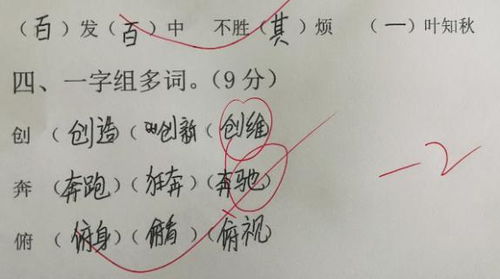 （百）发（百）中 不胜（其）烦 （一）叶知秋
四、一字组多词。(9分)
创 （创造）（创新（创维）
奔 （奔跑）（狂奔）（奔驰）
俯 （俯身）（俯首）（俯视）
-2